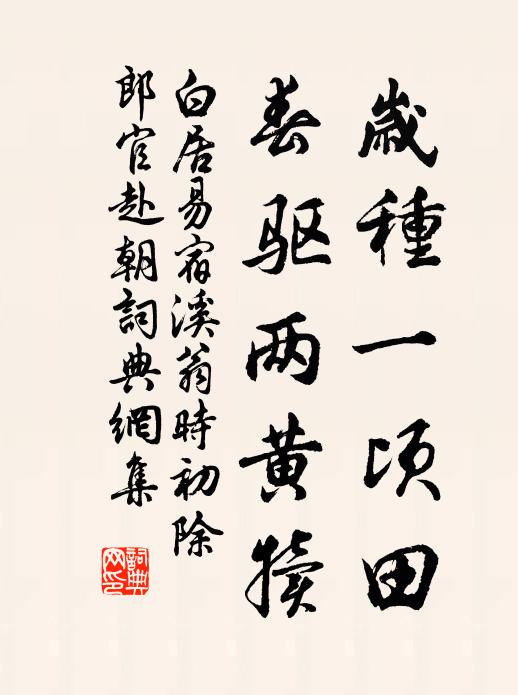 歲種一頃田
春驱两黄犢
白居易宿溪翁時初除
郎官赴朝詞典網集
詞典网印